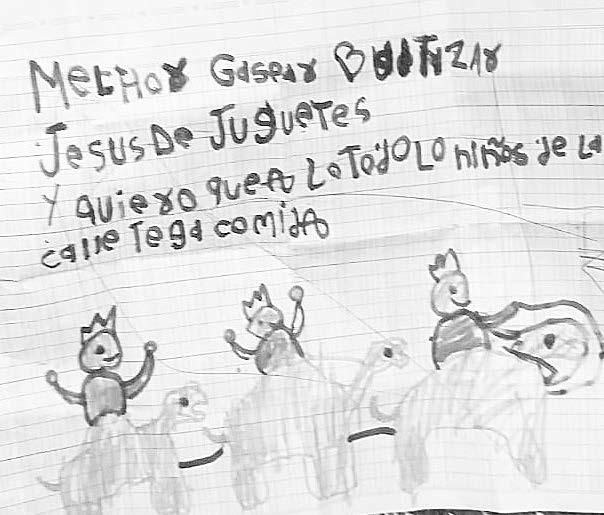 MeLHOR GasPar BalTIZAR
JesusDe JuGueTes
Y quiero quea LoTodoLo niños de La
calle Tega comida